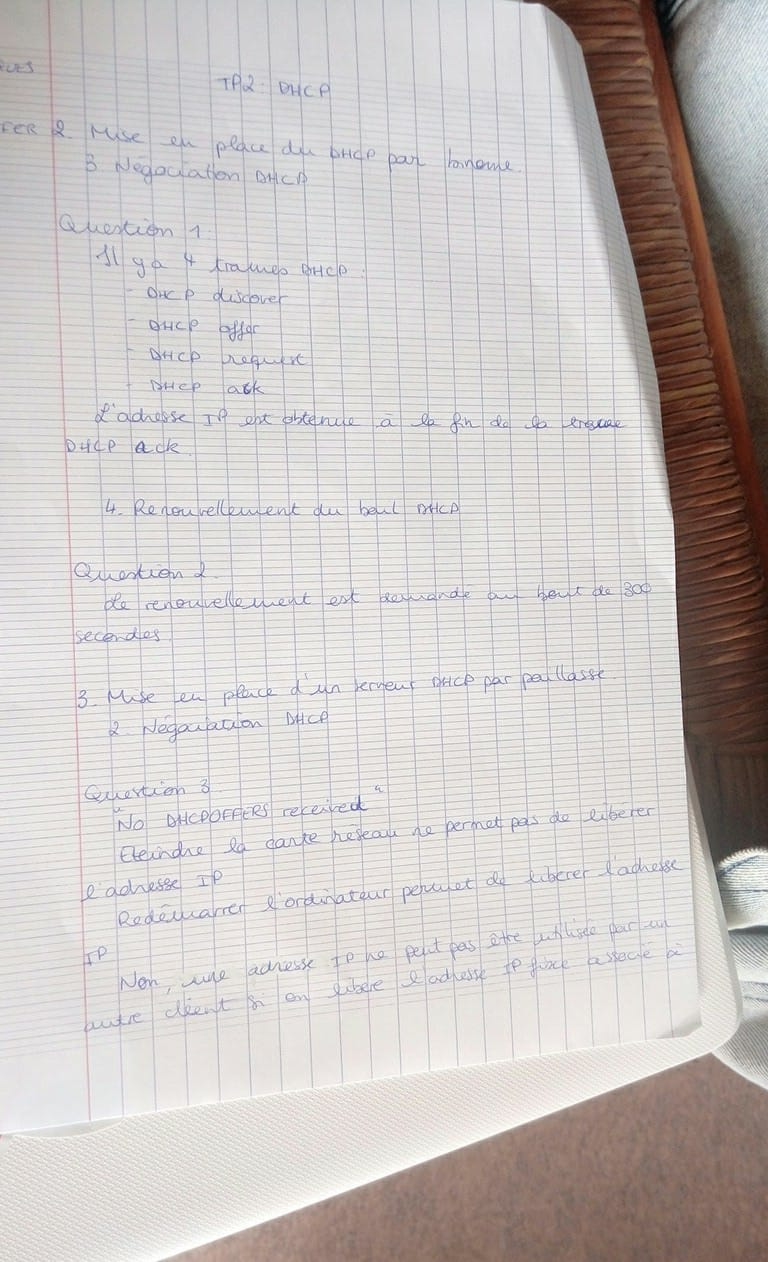 TP2: DHCP
2. Mise en place du DHCP par binome.
3 Négociation DHCP
Question 1.
Il y a 4 trames DHCP :
- DHCP discover
- DHCP offer
- DHCP request
- DHCP ack
L'adresse IP est obtenue à la fin de la trame
DHCP ack.
4. Renouvellement du bail DHCP
Question 2.
Le renouvellement est demandé au bout de 300
secondes.
3. Mise en place d'un serveur DHCP par paillasse.
2. Négociation DHCP
Question 3
"No DHCPOFFERS received"
Eteindre la carte réseau ne permet pas de libérer
l'adresse IP
Redémarrer l'ordinateur permet de libérer l'adresse
IP
Non, une adresse IP ne peut pas être utilisée par un
autre client si on libère l'adresse IP fixe associé à